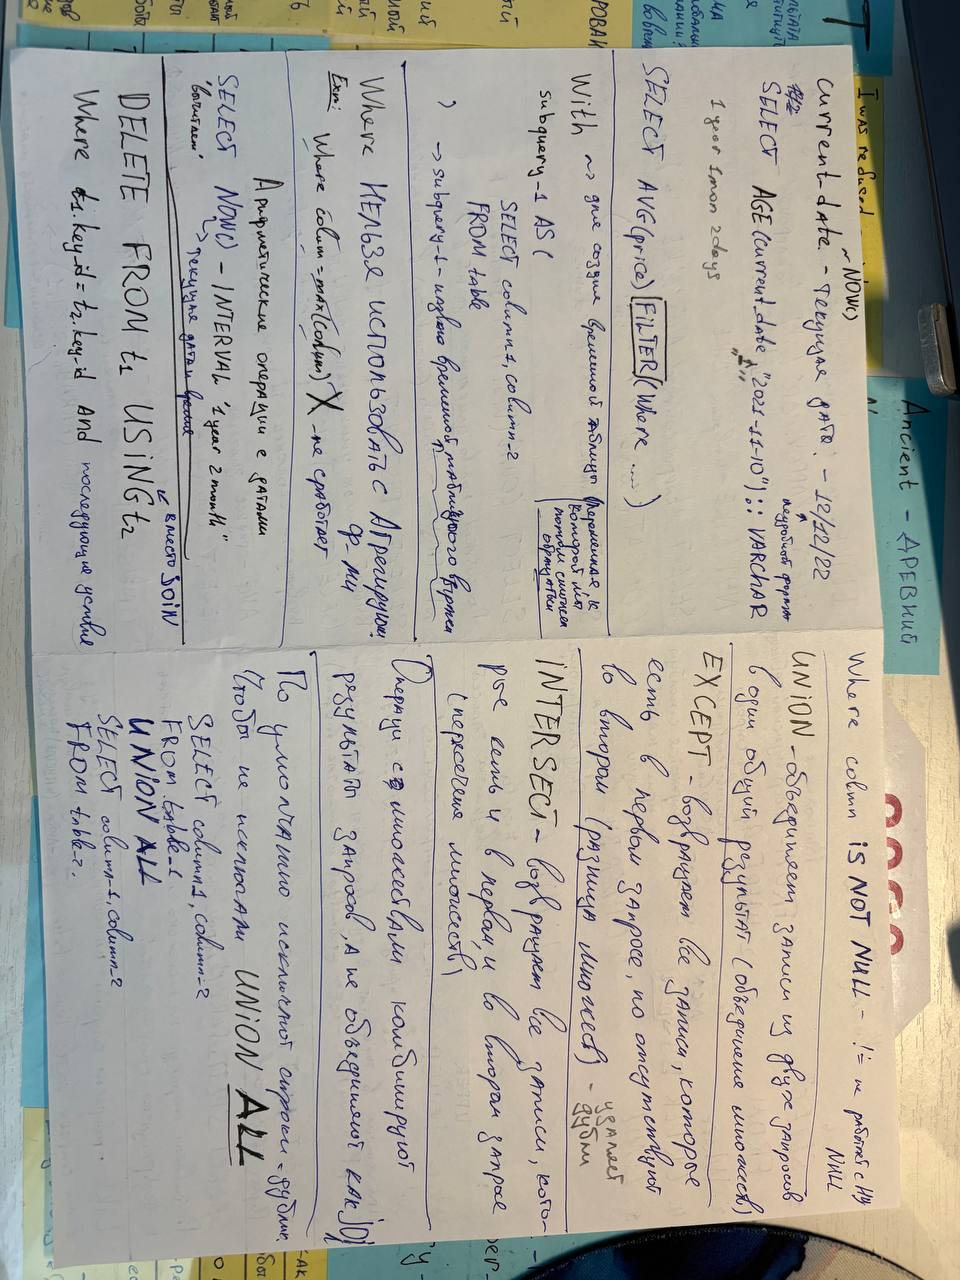 ~ NOW()
current_date - текущая дата! - 12/12/22
неудобный формат
SELECT AGE(current_date, "2021-11-10") :: VARCHAR
1 year 1 mon 2 days
SELECT AVG(price) FILTER (Where ......)
With ~> для создания временной таблицы (переменная, к
которой мы
потом сможем
обратиться
subquery_1 AS (
SELECT column_1, column_2
FROM table
)
→ subquery_1 -
Where НЕЛЬЗЯ ИСПОЛЬЗОВАТЬ С Агрегирующ.
Ф-МИ
Exm: Where column = max(column) X - не сработает
Арифметические операции с датами
SELECT NOW() - INTERVAL '1 year 2 month"
"вычитаем" → текущая дата и время
DELETE FROM t1 USING t2
вместо JOIN
Where t1.key_id = t2.key_id And последующие условие
Where column IS NOT NULL - != не работает с
NULL
UNION - объединяет записи из двух запросов
в один общий результат (объединение множеств)
EXCEPT - возвращает все записи, которые
есть в первом запросе, но отсутствуют
во втором (разница множеств) - удаляет
дубли
INTERSECT - возвращает все записи, кото-
рые есть и в первом, и в втором запросе
(пересечение множеств)
Операции с множествами комбинируют
результаты запросов, а не объединяют как
По умолчанию исключают строки-дублик.
Чтобы не исключали UNION ALL
SELECT column_1, column_2
FROM table_1
UNION ALL
SELECT column_1, column_2
FROM table_2.
Ancient - ДРЕВНИЙ
I was refused